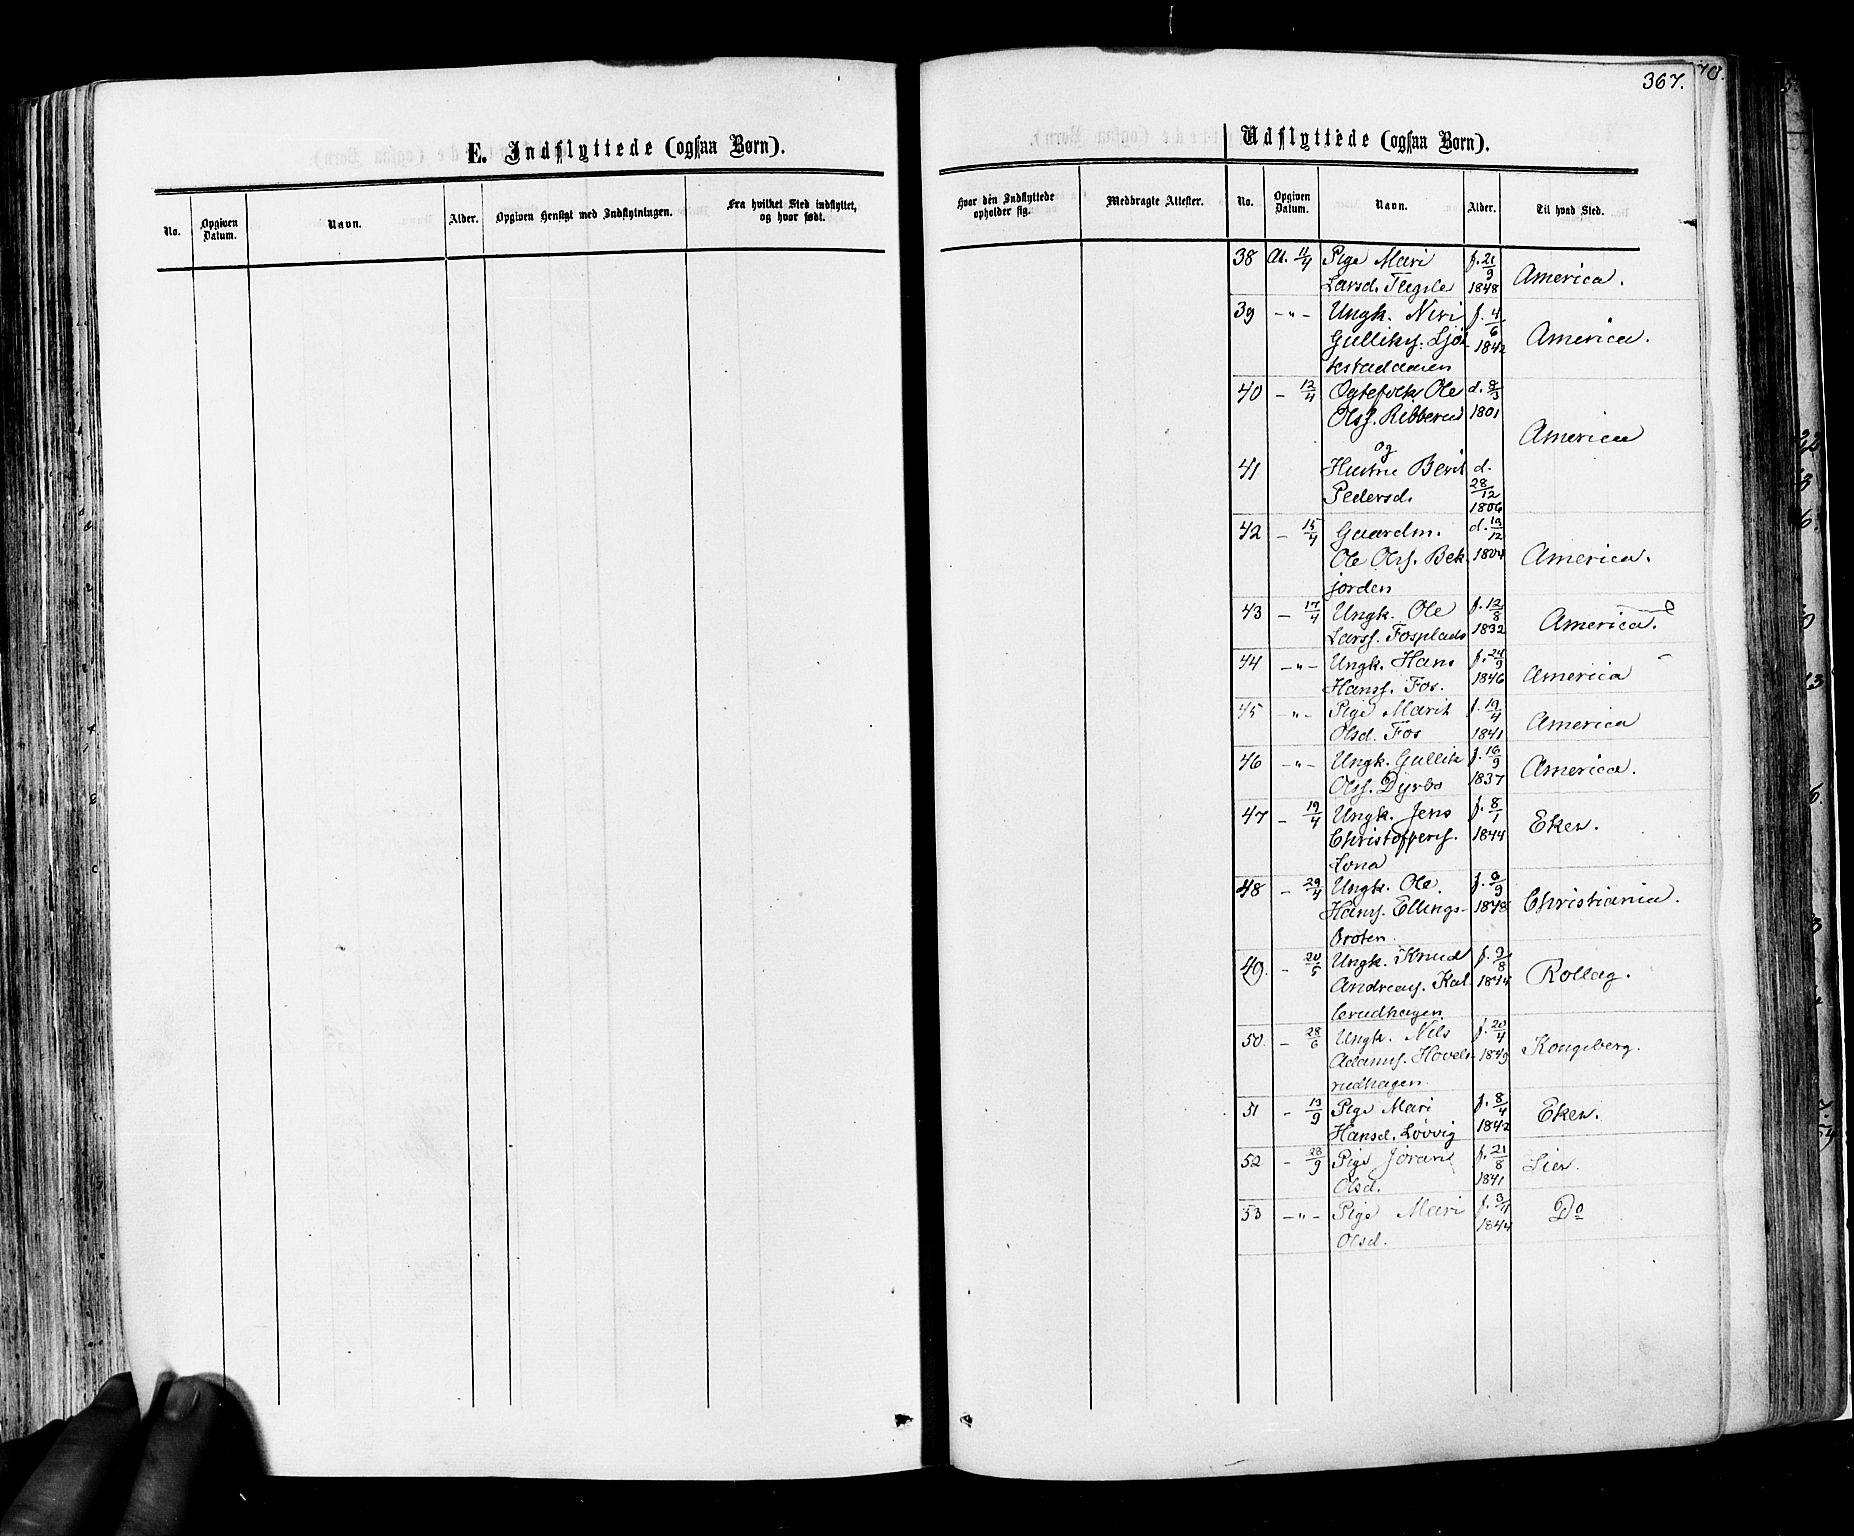 367.
E. Indflyttede (ogsaa Børn).
No.
Opgiven Datum.
Navn.
Alder.
Opgiven Hensigt med Indflytningen.
Fra hvilket Sted indflyttet, og hvor født.
Udflyttede (ogsaa Børn).
Hvor den Indflyttede opholder sig.
Medbragte Attester.
No.
Opgiven Datum.
Navn.
Alder.
Til hvad Sted.
38 11/4 Pige Mari f. 21/9
Larsd. 1848 America.
39 -"- Ungk. f. 4/6
Gulliks. 1842 America.
40 - 12/4 Ole d. 8/3
Olss. Ribberud 1801
og America
41 Hustru Berit d.
Pedersd. 28/12
1806
42 - 15/4 Gaardm. d. 19/12
Ole Olss. Bek 1804 America.
jorden
43 - 17/4 Ungk. Ole f. 12/8
Larss. Fosplads 1832 America.
44 -"- Ungk. Hans f. 24/9
Hanss. Fos. 1846 America
45 -"- Pige Marit f. 19/4
Olsd. Fos 1841 America
46 -"- Ungk. Gullik f. 16/9
Olss. Dyrbo 1837 America.
47 - 19/4 Ungk. Jens f. 8/1
Christoffers. 1844 Eker.
Lona
48 - 29/4 Ungk. Ole. f. 6/9
Hanss. Ellings- 1848 Christiania.
broten
49. - 20/5 Ungk. Knud f. 9/8
Andreas. Kal 1844 Rollag.
lerudhagen
50. - 28/6 Ungk. Nils f. 20/4
Adams. Hovels 1849 Kongsberg.
rudhagen
51 - 13/9 Pige Mari f. 8/4
Hansd. Løvvig 1842 Eker.
52 - 28/9 Pige Jørand f. 21/8
Olsd. 1841 Lier.
53 -"- Pige Mari f. 3/4
Olsd. 1844 Do